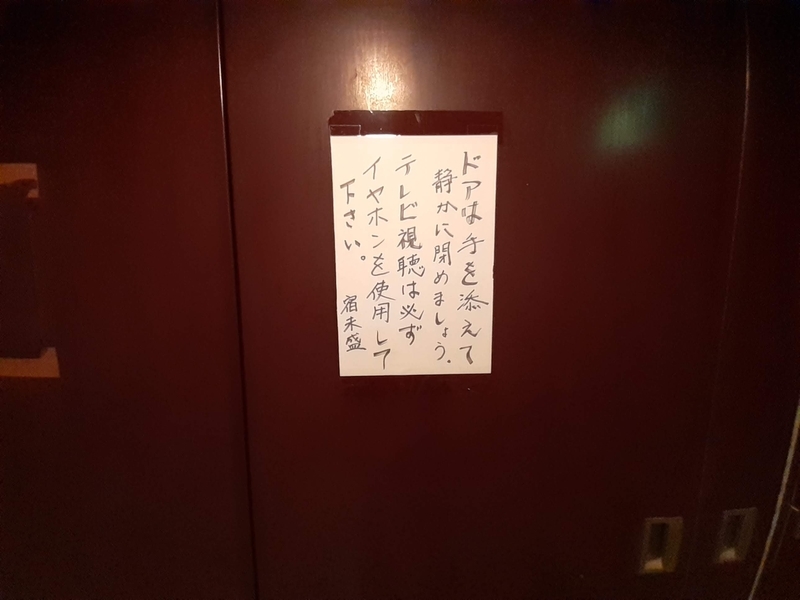 ドアは手を添えて
静かに閉めましょう.
テレビ視聴は必ず
イヤホンを使用して
下さい。
宿未盛